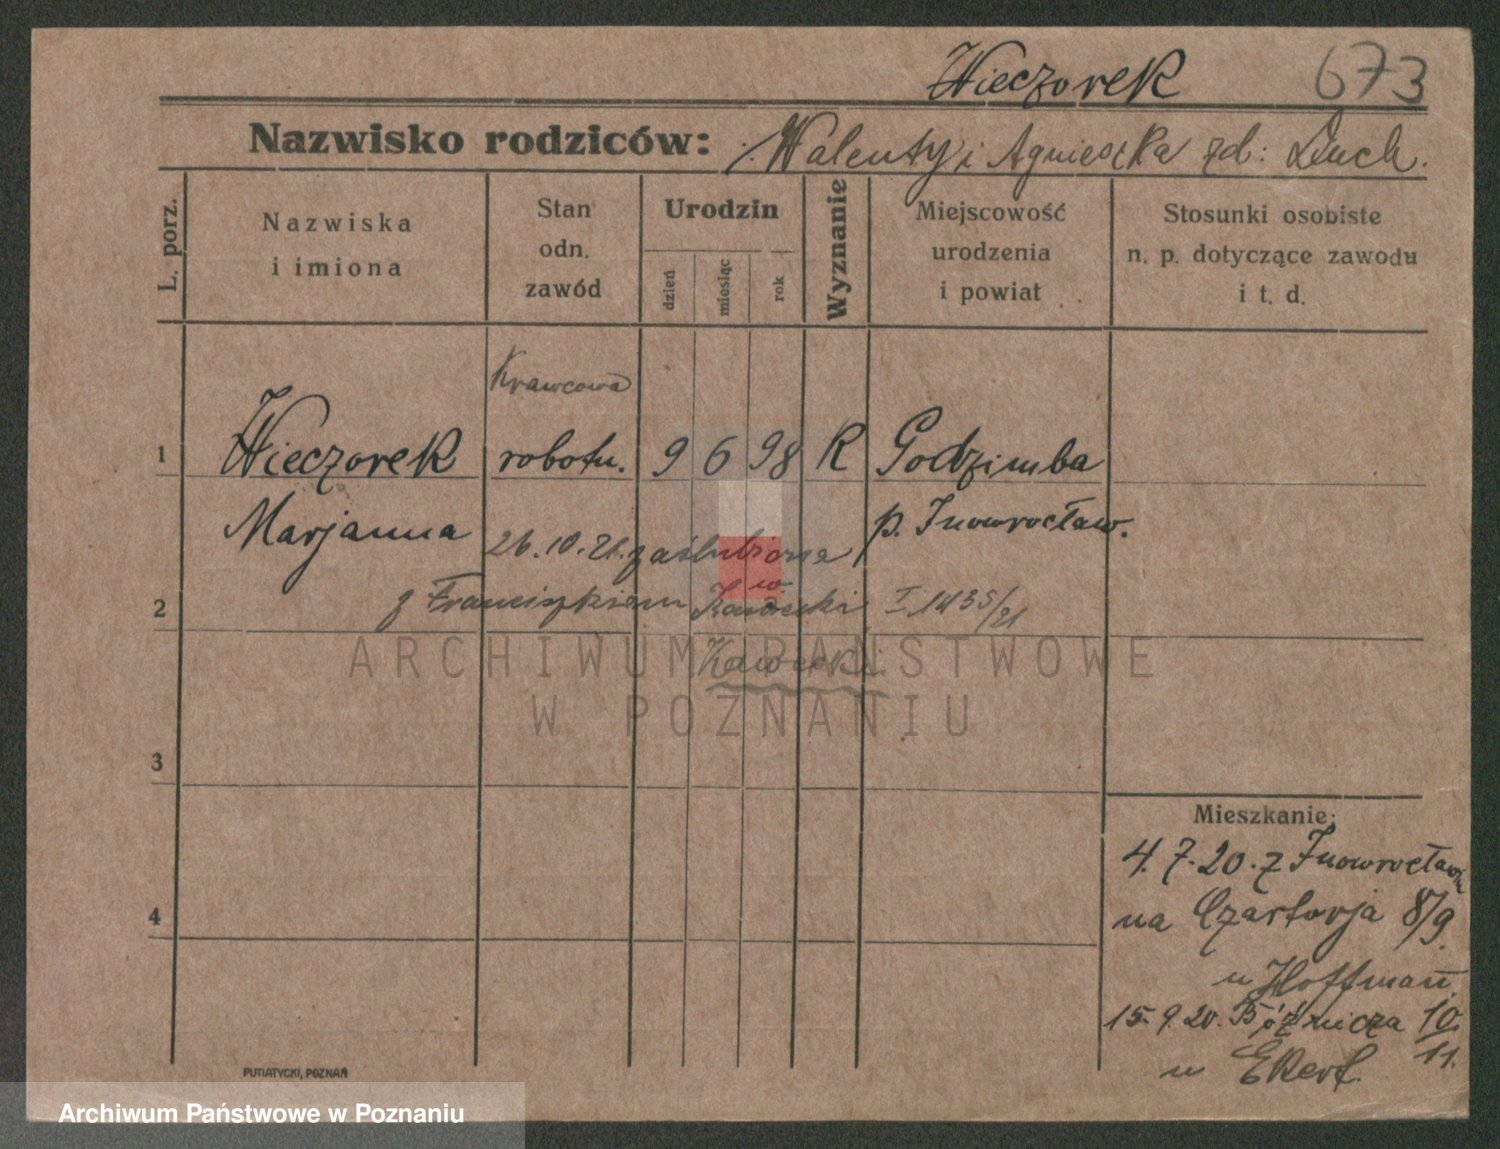 Wieczorek 673
Nazwisko rodziców: /. Walenty i Agnieszka zd: Duch.
L. porz.
Nazwiska
i imiona
Stan
odn.
zawód
Urodzin
dzień
miesiąc
rok
Wyznanie
Miejscowość
urodzenia
i powiat
Stosunki osobiste
n. p. dotyczące zawodu
i t. d.
Krawcowa
1 Wieczorek robotn. 9 6 98 R Godzimba
Marjanna p. Inowrocław.
26.10.21. zaślubiona
w
2 z Franciszkiem Kawecki I 1435/21
Kawecki
ARCHIWUM PAŃSTWOWE
W POZNANIU
3
4
Mieszkanie:
4.7.20. z Inowrocławia
na Czartorja 8/9
u Hoffman.
15.9.20. Bóżnicza 10/11.
u Ekert.
PUTIATYCKI, POZNAŃ
Archiwum Państwowe w Poznaniu